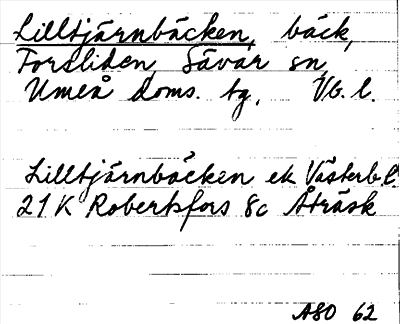 Lilltjärnbäcken, bäck,
Forsliden, Sävar sn,
Umeå doms. tg, Vb. l.
Lilltjärnbäcken ek Västerb. l.
21 K Robertsfors 8c Åträsk
ASO 62